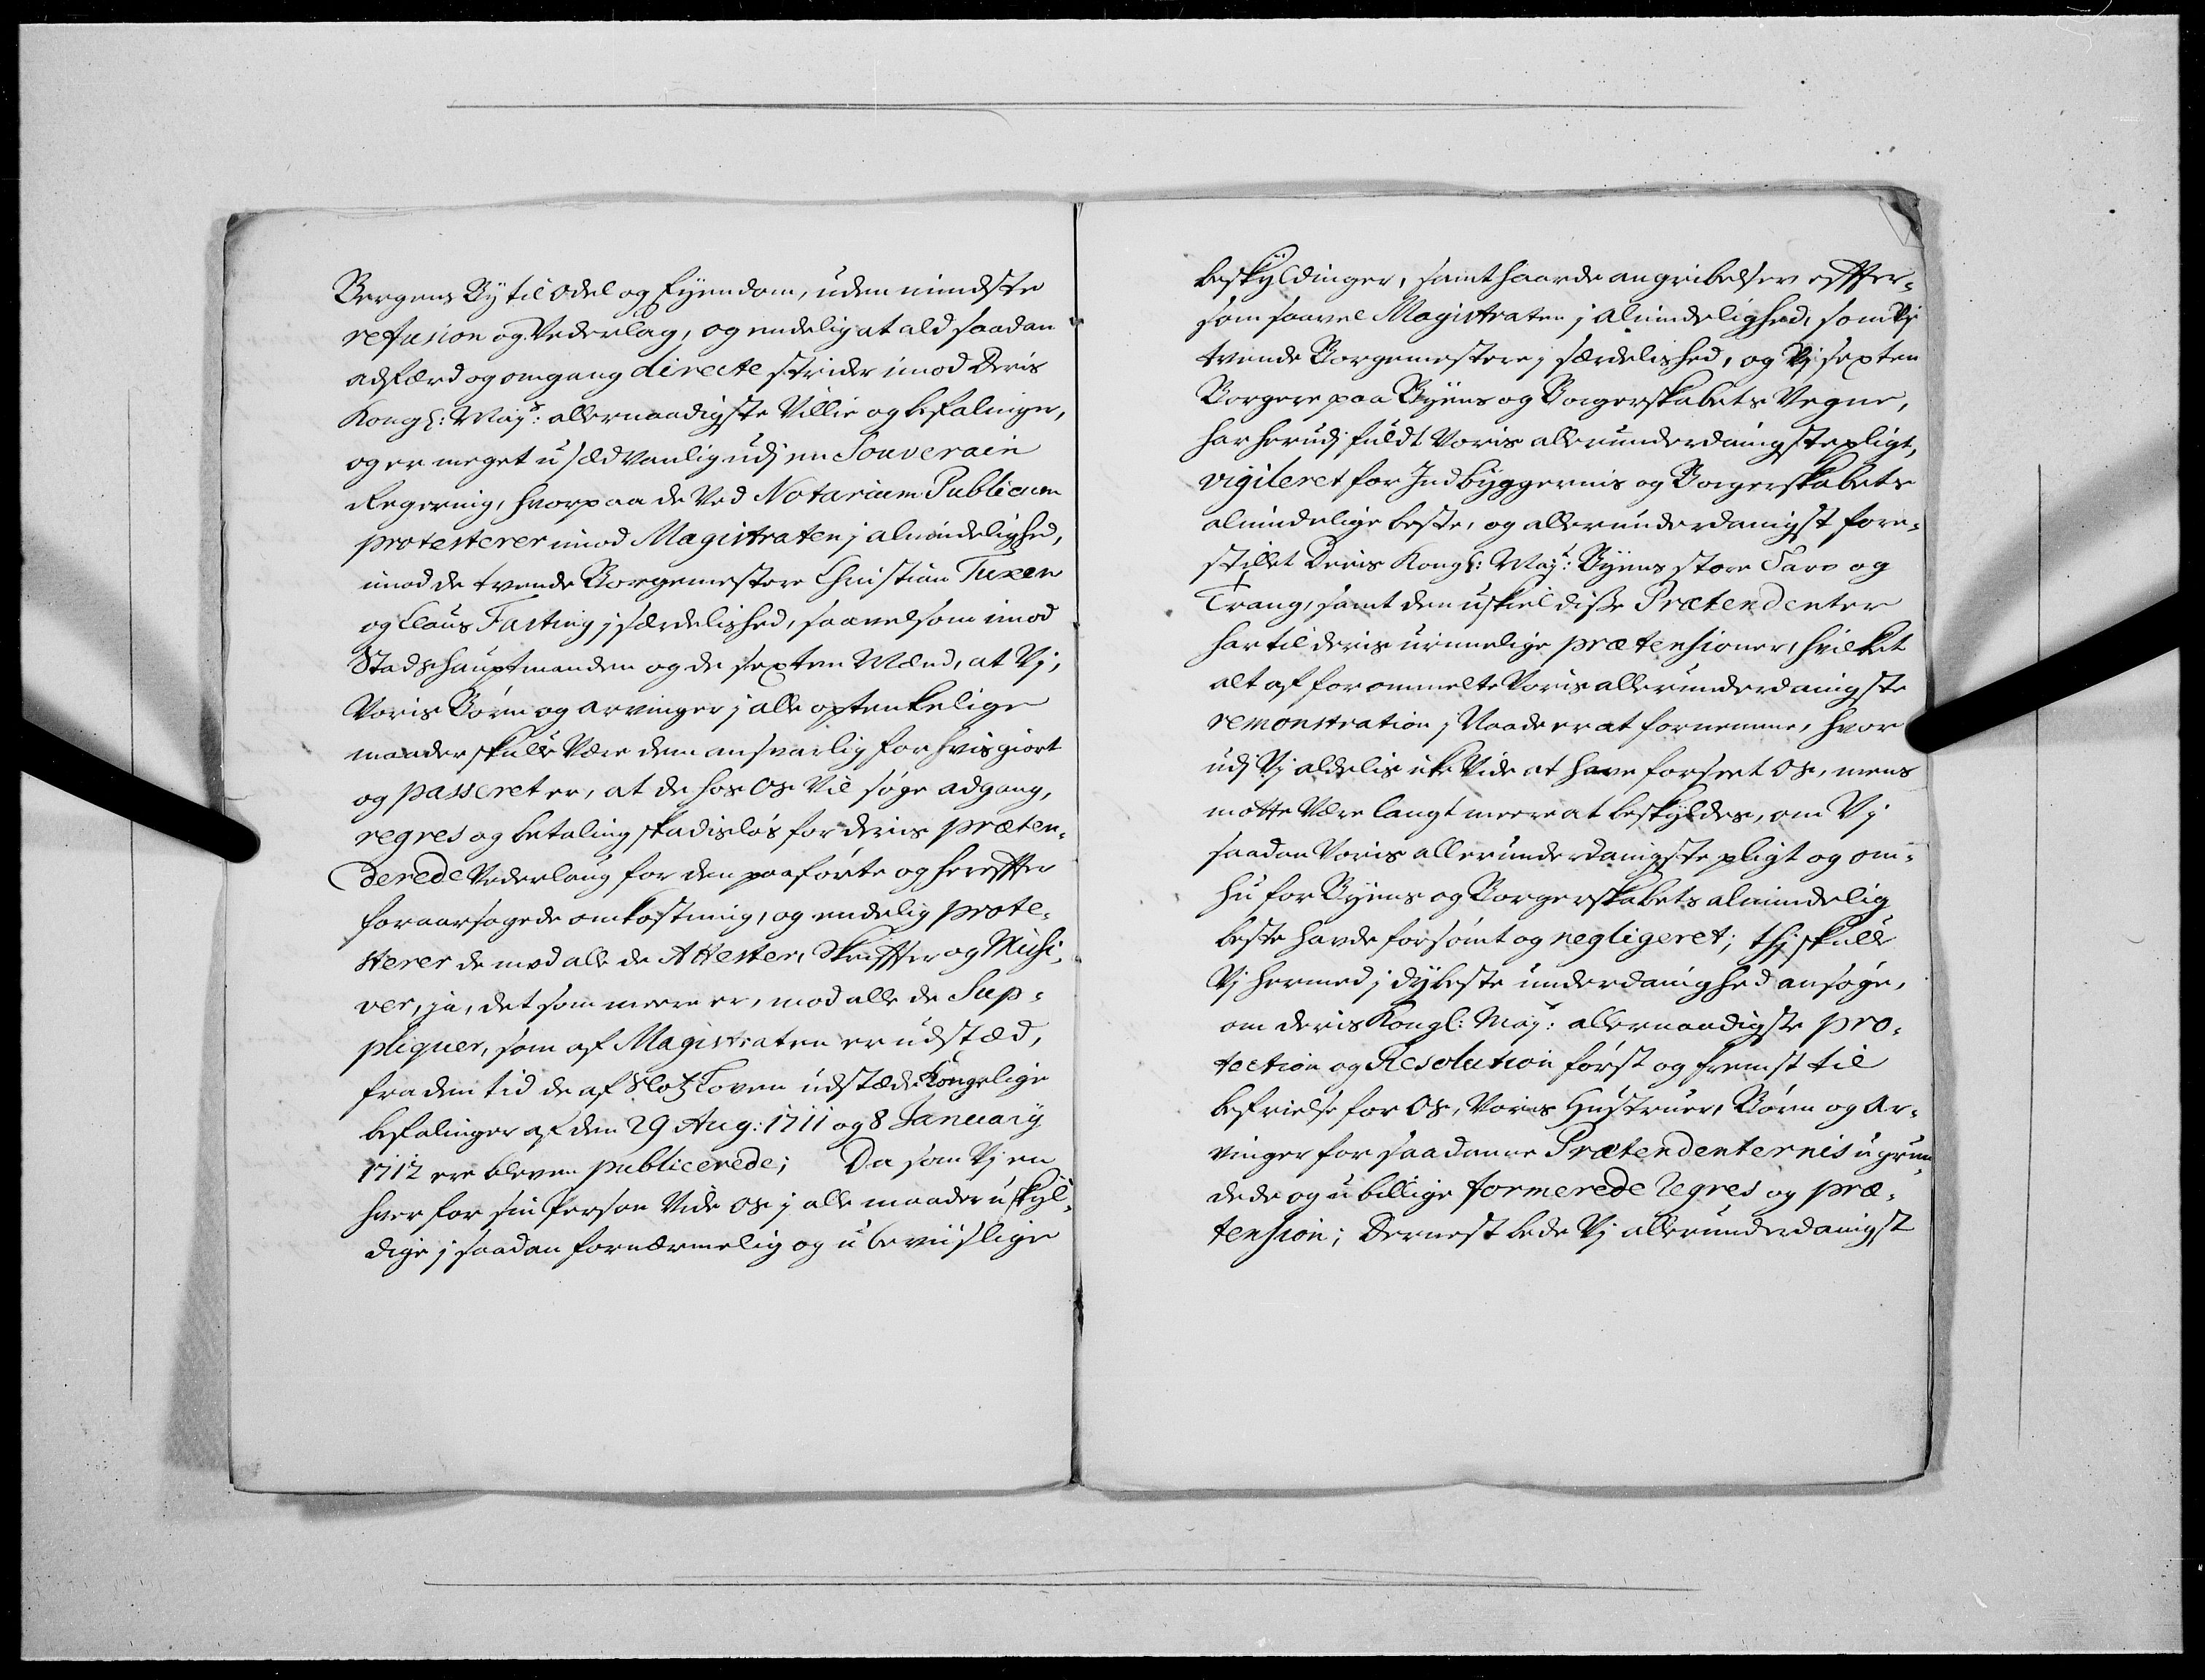 Bergens By til odel og Eyendom, uden mindste
refusion og Vederlag, og endelig at ald saadan
adfærd og omgang directe strider imod Deris
Kongl: Maj:ᵗˢ allernaadigste Villie og befalinger,
og er meget usædvanlig udj een Souverain
Regering, hvorpaa de Ved Notarium Publicum
protesterer imod Magistraten j almindelighed,
imod de tvende Borgemestere Christian Tuxen
og Claus Fasting j særdelished, saavelsom imod
Stadshauptmanden og de sexten Mænd, at Vj,
Voris Børn og arvinger j alle optenkelige
maader skulle Være dem ansvarlig for hvis giort
og passeret er, at de hos Os Vil søge adgang,
regres og betaling skadisløs for deris præten-
derede Vederlaug for den paaførte og herefter
foraarsagede omkostning, og endelig prote-
sterer de mod alle de Attester, Skriffter og Missi-
ver, ja, det som meere er, mod alle de Sup-
pliquer, som af Magistraten er udstæd,
fra den tid de af Slotz Loven udstæde Kongelige
befalinger af den 29 Aug: 1711 og 8 January
1712 ere bleven publicerede; Da som Vj en
hver for sin Person Vide os j alle maader uskyl-
dige j saadan fornærmelig og ubeviislige
beskyldinger, samt haarde angribelser effter-
som saavel Magistraten j almindelighed, som Vj
tvende Borgemestere j særdelished, og Vj sexten
Borgere paa Byens og Borgerskabets Vegne,
har herudj fuldt Voris allerunderdanigste pligt,
vigileret for Indbyggernis og Borgerskabets
almindelige beste, og allerunderdanigst fore-
stillet Deris Kongl: Maj:ᵗ Byens store Tarv og
Trang, samt den uskiel disse Prætendenter
har til deris urimelige prætensioner, hvilket
alt af forommelte Voris allerunderdanigste
remonstration j Naade er at fornemme, hvor
udj Vj aldelis icke Vide at have forseet Os, mens
motte Være langt meere at beskyldes, om Vj
saadan Voris allerunderdanigste pligt og om-
hu for Byens og Borgerskabets almindelig
beste havde forsømt og negligeret; thj skulle
Vj hermed j dybeste underdanighed ansøge,
om deris Kongl: Maj:ᵗˢ allernaadigste pro-
tection og Resolution først og fremst til
befrielse for Os, Voris Hustruer, Børn og Ar-
vinger for saadanne Prætendenternis ugrun-
dede og ubillige formerede Regres og præ-
tension; Dernest bede Vj allerunderdanigst